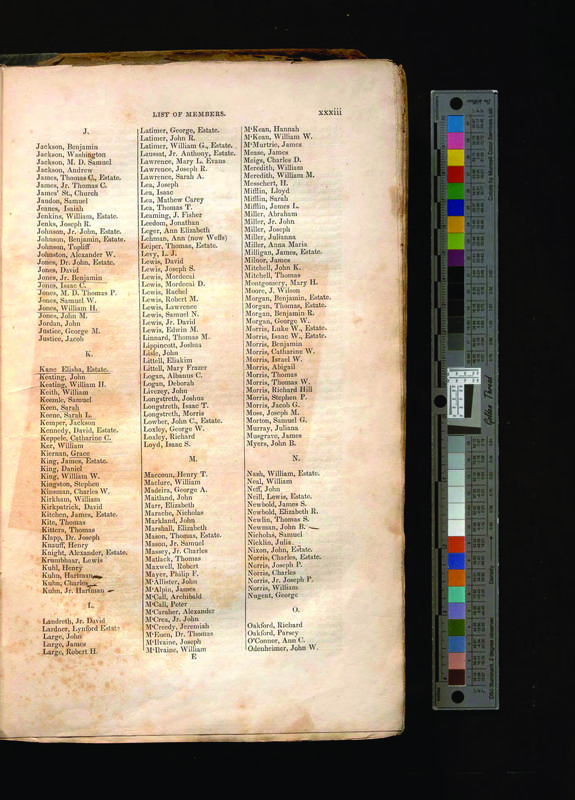 LIST OF MEMBERS.
xxxiii
J.
Jackson, Benjamin
Jackson, Washington
Jackson, M. D. Samuel
Jackson, Andrew
James, Thomas C., Estate.
James, Jr. Thomas C.
James' St., Church
Jaudon, Samuel
Jeanes, Isaiah
Jenkins, William, Estate.
Jenks, Joseph R.
Johnson, Jr. John, Estate.
Johnson, Benjamin, Estate.
Johnson, Topliff
Johnston, Alexander W.
Jones, Dr. John, Estate.
Jones, David
Jones, Jr. Benjamin
Jones, Isaac C.
Jones, M. D. Thomas P.
Jones, Samuel W.
Jones, William H.
Jones, John M.
Jordan, John
Justice, George M.
Justice, Jacob
K.
Kane Elisha, Estate.
Keating, John
Keating, William H.
Keith, William
Keemle, Samuel
Keen, Sarah
Keene, Sarah L.
Kemper, Jackson
Kennedy, David, Estate.
Keppele, Catharine C.
Ker, William
Kiernan, Grace
King, James, Estate.
King, Daniel
King, William W.
Kingston, Stephen
Kinsman, Charles W.
Kirkham, William
Kirkpatrick, David
Kitchen, James, Estate.
Kite, Thomas
Kittera, Thomas
Klapp, Dr. Joseph
Knauff, Henry
Knight, Alexander, Estate.
Krumbhaar, Lewis
Kuhl, Henry
Kuhn, Hartman
Kuhn, Charles
Kuhn, Jr. Hartman
L.
Landreth, Jr. David
Lardner, Lynford Estate
Large, John
Large, James
Large, Robert H.
Latimer, George, Estate.
Latimer, John R.
Latimer, William G., Estate.
Laussat, Jr. Anthony, Estate.
Lawrence, Mary L. Evans
Lawrence, Joseph R.
Lawrence, Sarah A.
Lea, Joseph
Lea, Isaac
Lea, Mathew Carey
Lea, Thomas T.
Leaming, J. Fisher
Leedom, Jonathan
Leger, Ann Elizabeth
Lehman, Ann (now Wells)
Leiper, Thomas, Estate.
Levy, L. J.
Lewis, David
Lewis, Joseph S.
Lewis, Mordecai
Lewis, Mordecai D.
Lewis, Rachel
Lewis, Robert M.
Lewis, Lawrence
Lewis, Samuel N.
Lewis, Jr. David
Lewis, Edwin M.
Linnard, Thomas M.
Lippincott, Joshua
Lisle, John
Littell, Eliakim
Littell, Mary Frazer
Logan, Albanus C.
Logan, Deborah
Livezey, John
Longstreth, Joshua
Longstreth, Isaac T.
Longstreth, Morris
Lowber, John C., Estate.
Loxley, George W.
Loxley, Richard
Loyd, Isaac S.
M.
Maccoun, Henry T.
Maclure, William
Madeira, George A.
Maitland, John
Marr, Elizabeth
Marache, Nicholas
Markland, John
Marshall, Elizabeth
Mason, Thomas, Estate.
Mason, Jr. Samuel
Massey, Jr. Charles
Matlack, Thomas
Maxwell, Robert
Mayer, Philip F.
McAllister, John
McAlpin, James
McCall, Archibald
McCall, Peter
McCaraher, Alexander
McCrea, Jr. John
McCreedy, Jeremiah
McEuen, Dr. Thomas
McIlvaine, Joseph
McIlvaine, William
E
McKean, Hannah
McKean, William W.
McMurtrie, James
Mease, James
Meigs, Charles D.
Meredith, William
Meredith, William M.
Messchert, H.
Mifflin, Lloyd
Mifflin, Sarah
Mifflin, James L.
Miller, Abraham
Miller, Jr. John
Miller, Joseph
Miller, Julianna
Miller, Anna Maria
Milligan, James, Estate.
Milnor, James
Mitchell, John K.
Mitchell, Thomas
Montgomery, Mary H.
Moore, J. Wilson
Morgan, Benjamin, Estate.
Morgan, Thomas, Estate.
Morgan, Benjamin R.
Morgan, George W.
Morris, Luke W., Estate.
Morris, Isaac W., Estate.
Morris, Benjamin
Morris, Catharine W.
Morris, Israel W.
Morris, Abigail
Morris, Thomas
Morris, Thomas W.
Morris, Richard Hill
Morris, Stephen P.
Morris, Jacob G.
Moss, Joseph M.
Morton, Samuel G.
Murray, Juliana
Musgrave, James
Myers, John B.
N.
Nash, William, Estate.
Neal, William
Neff, John
Neill, Lewis, Estate.
Newbold, James S.
Newbold, Elizabeth R.
Newlin, Thomas S.
Newman, John B.
Nicholas, Samuel
Nicklin, Julia
Nixon, John, Estate.
Norris, Charles, Estate.
Norris, Joseph P.
Norris, Charles
Norris, Jr. Joseph P.
Norris, William
Nugent, George
O.
Oakford, Richard
Oakford, Parsey
O'Connor, Ann C.
Odenheimer, John W.
Golden Thread